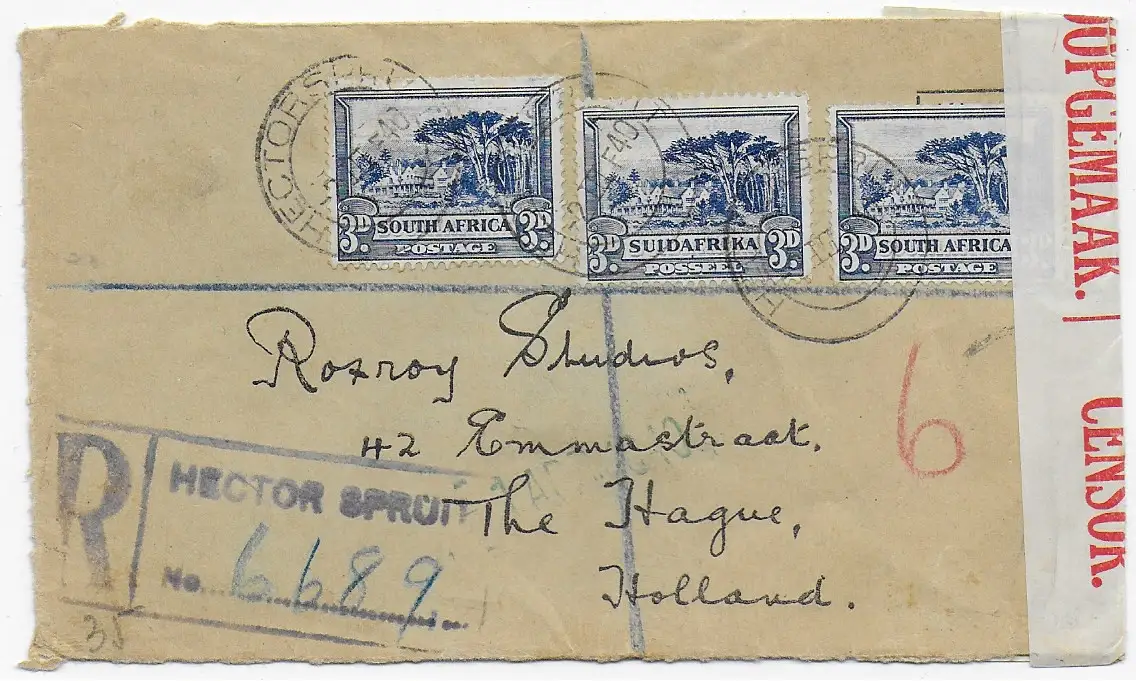 HECTORSPRUIT
3D. SOUTH AFRICA 3D.
POSTAGE
3D. SUIDAFRIKA 3D.
POSSEEL
3D. SOUTH AFRICA
POSTAGE
OOPGEMAAK. |
CENSOR.
Roxroy Studios,
42 Emmastraat.
The Hague,
Holland.
6
R
HECTOR SPRUIT
No. 6689
35